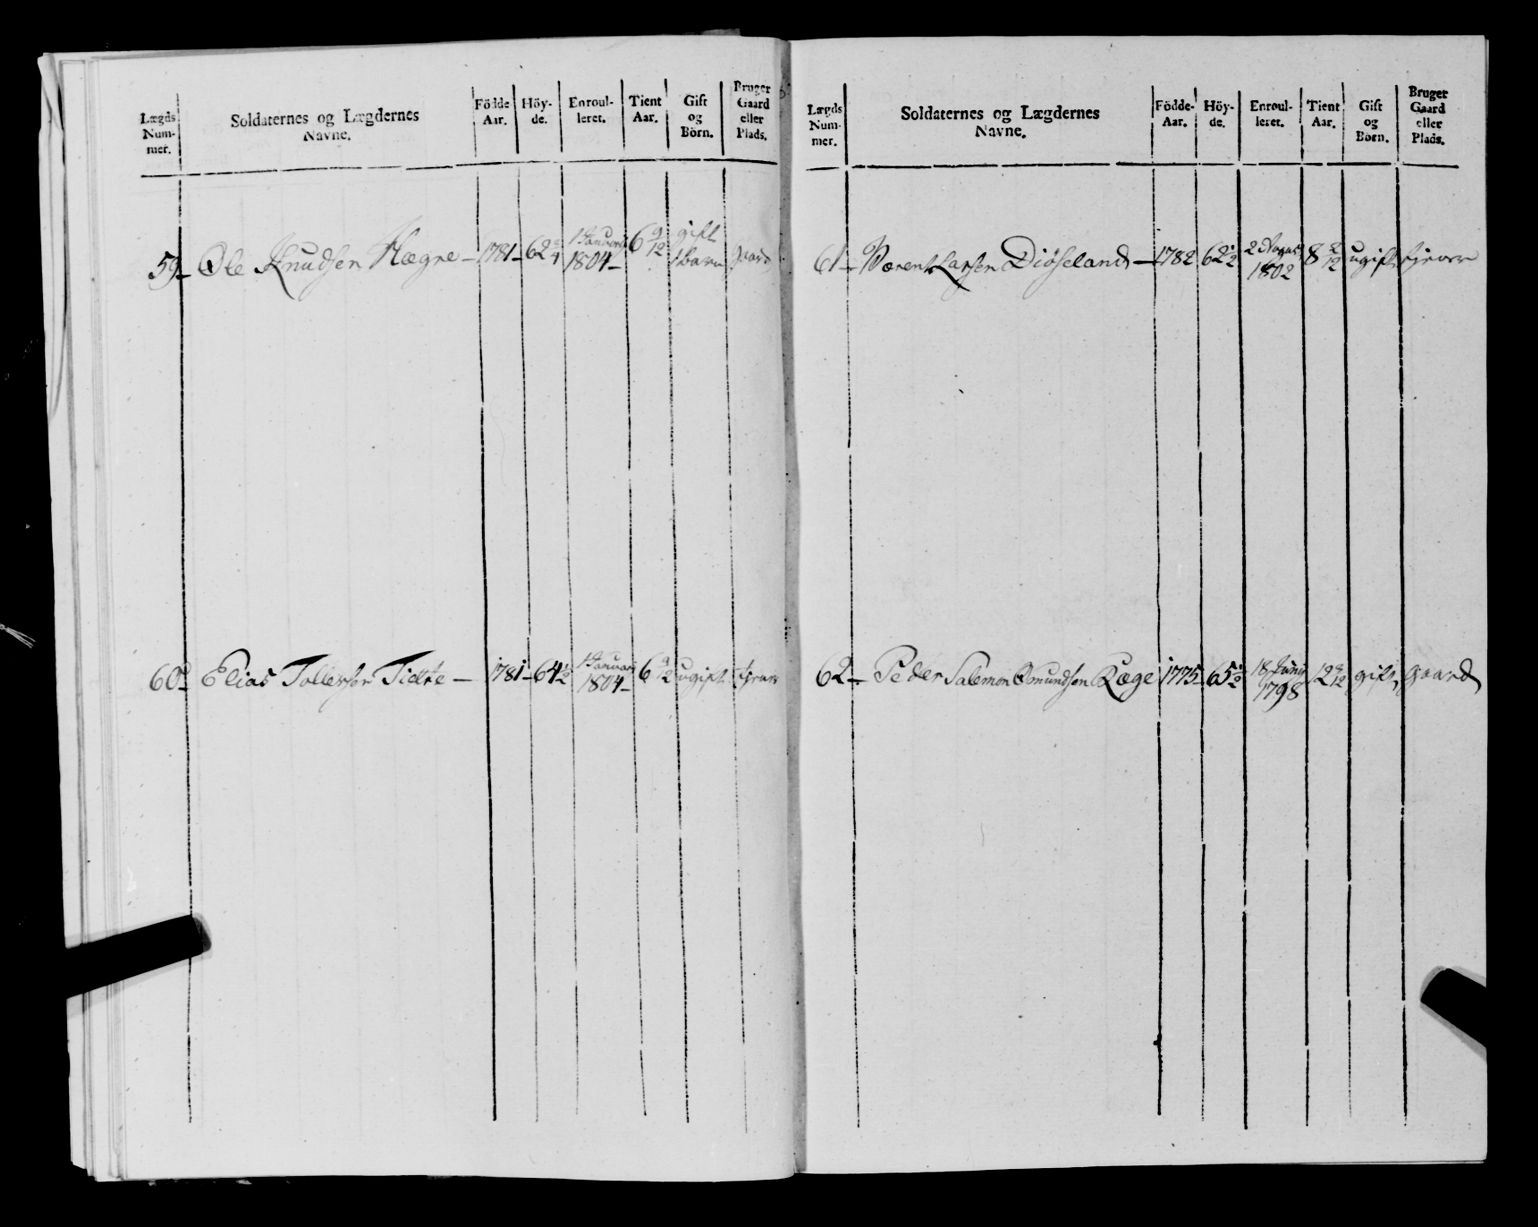 Lægds Num- mer.
Soldaternes og Lægdernes Navne.
Födde Aar.
Höy- de.
Enroul- leret.
Tient Aar.
Gift og Börn.
Bruger Gaard eller Plads.
59 Ole Knudsen Hægre 1781 62 1 Januarij 1804 6 9/12 gift 1 barn gaard
60 Elias Tollefsen Tieltе 1781 64 1/2 1 Januarij 1804 6 9/12 ugift
Lægds Num- mer.
Soldaternes og Lægdernes Navne.
Födde- Aar.
Höy- de.
Enroul- leret.
Tient Aar.
Gift og Börn.
Bruger Gaard eller Plads.
61 Larsen Diöseland 1782 62 1/2 1802 8 2/12 ugift
62 Peder Salemon Omundsen Ræge 1775 65 1/2 18 Junij 1798 12 gift gaard